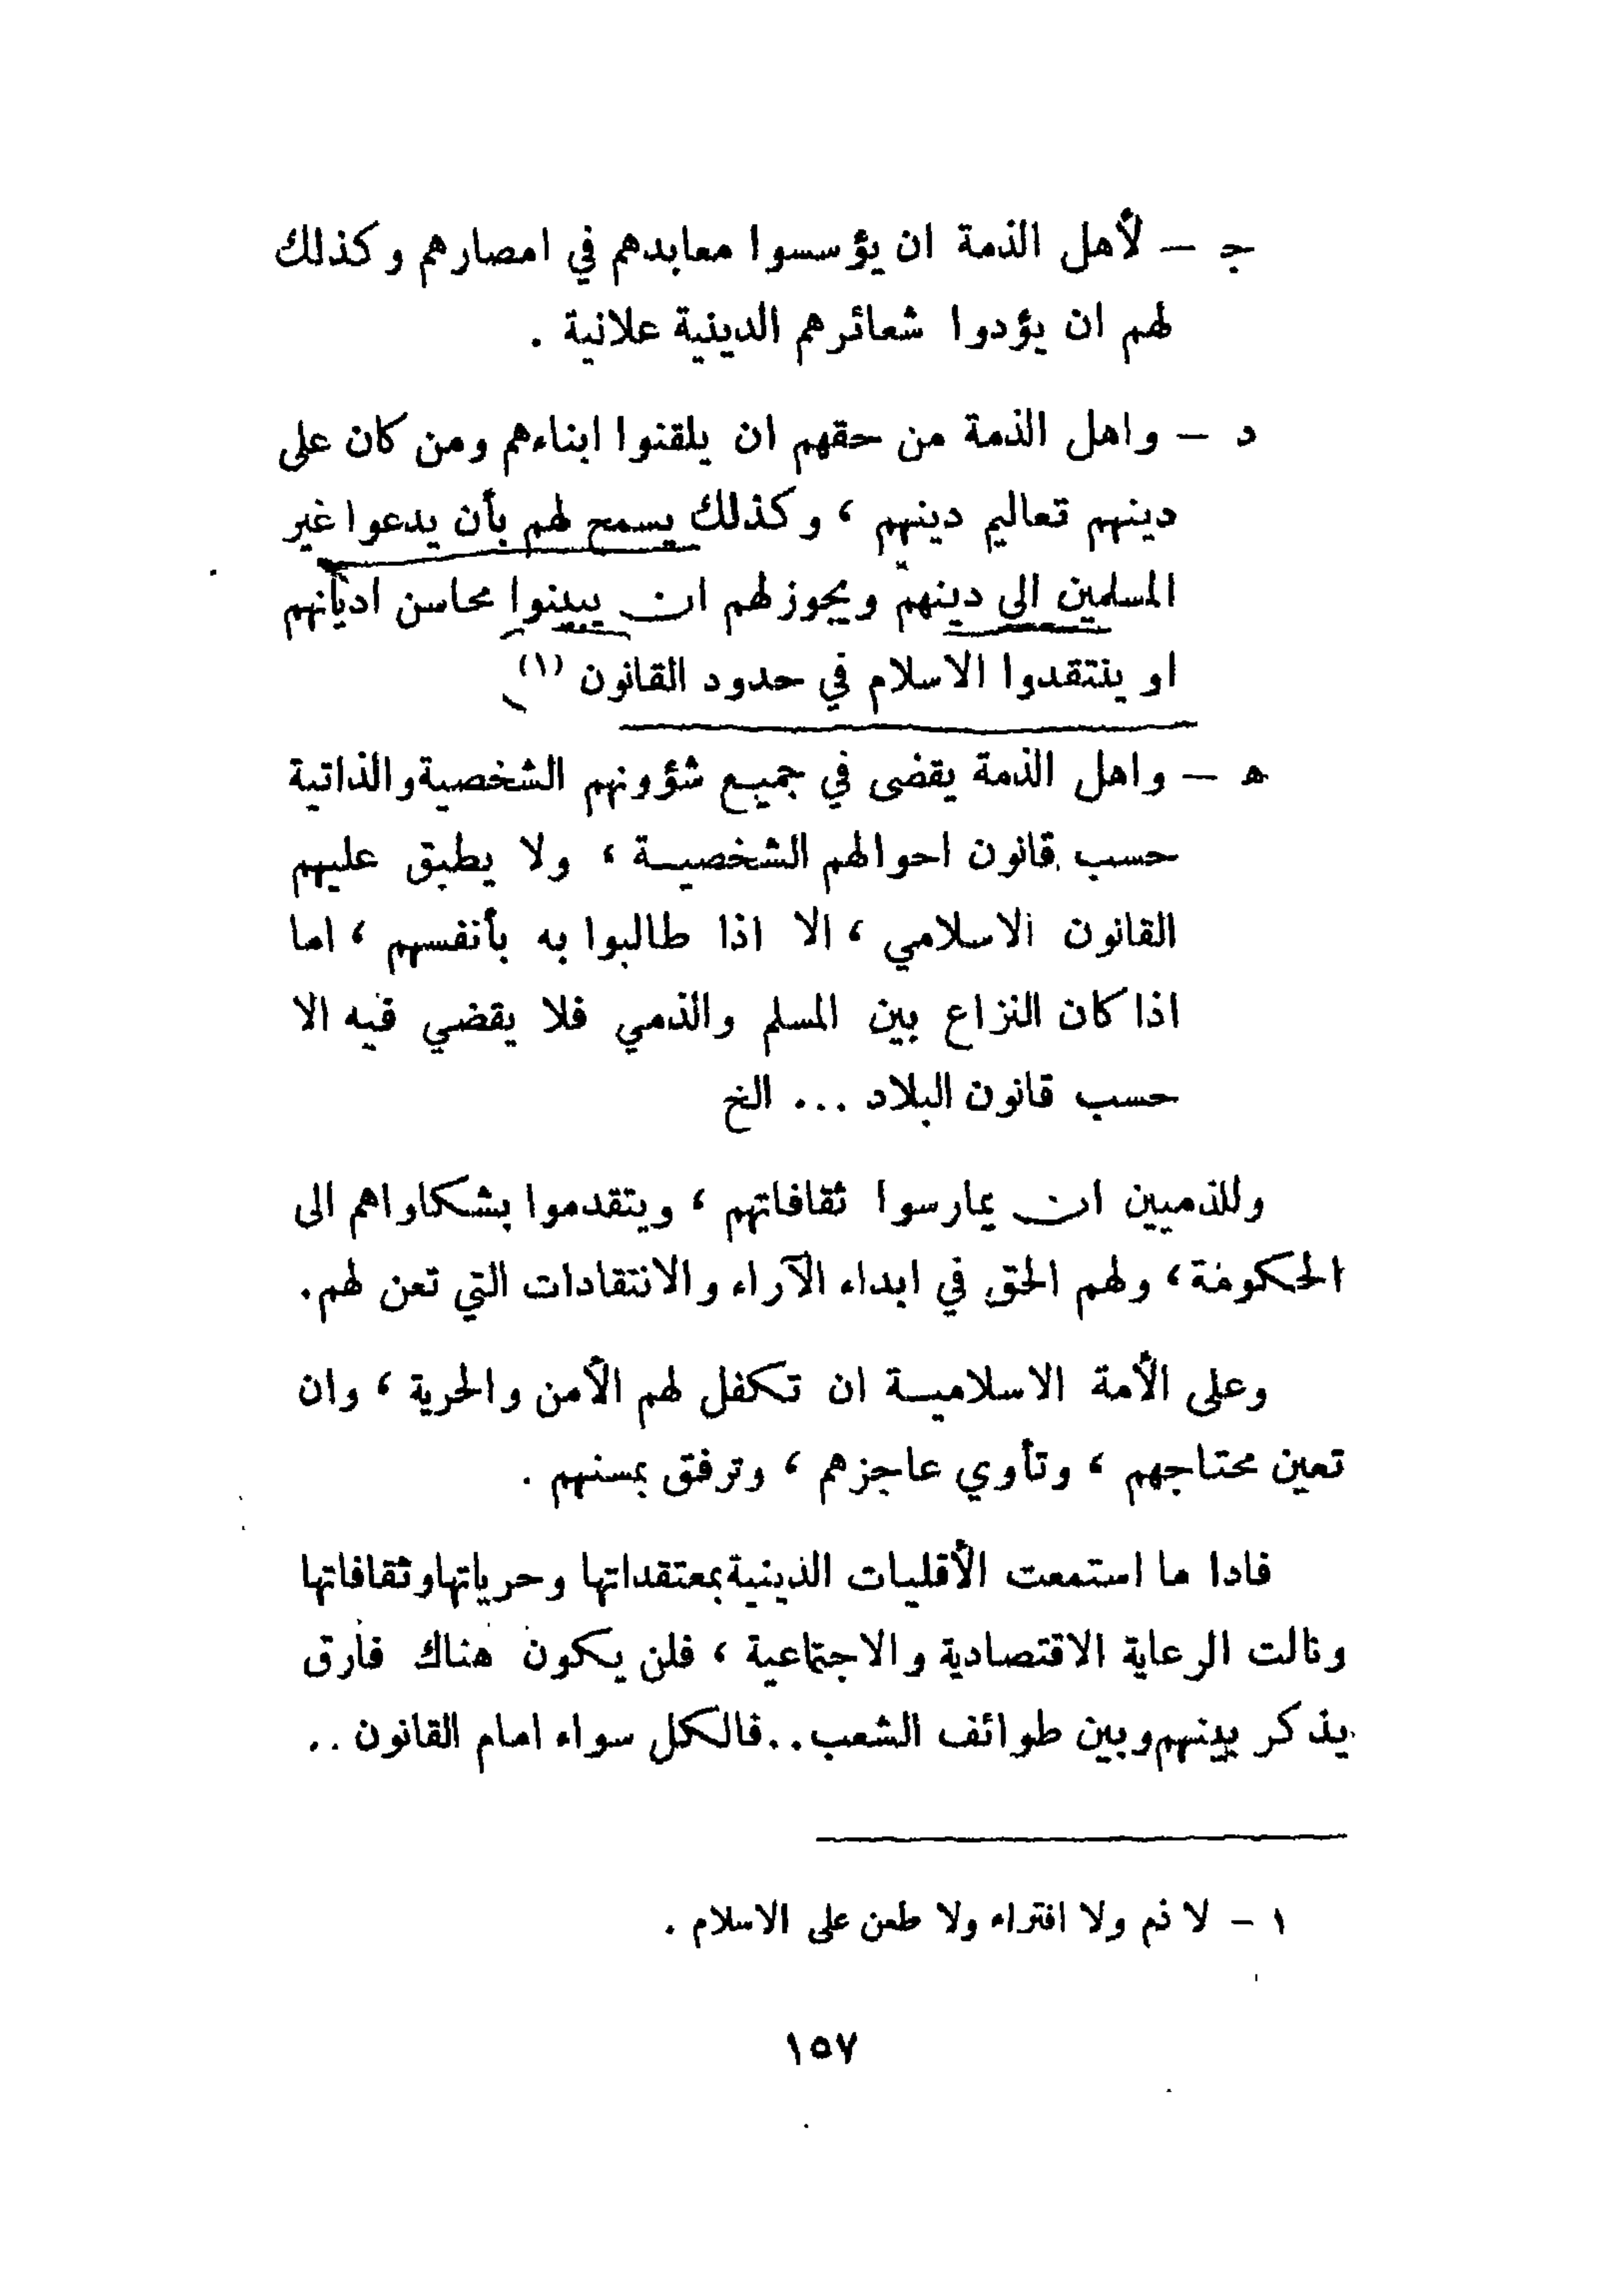 ج – لأهل الذمة ان يؤسسوا معابدهم في امصارهم وكذلك
لهم ان يؤدوا شعائرهم الدينية علانية .
د – واهل الذمة من حقهم ان يلقنوا ابناءهم ومن كان على
دينهم تعاليم دينهم ، وكذلك يسمح لهم بأن يدعوا غير
المسلمين الى دينهم ويجوز لهم ان يبينوا محاسن اديانهم
او ينتقدوا الاسلام في حدود القانون (١)
ه – واهل الذمة يقضى في جميع شؤونهم الشخصية والذاتية
حسب قانون احوالهم الشخصية ، ولا يطبق عليهم
القانون الاسلامي ، الا اذا طالبوا به بأنفسهم ، اما
اذا كان النزاع بين المسلم والذمي فلا يقضي فيه الا
حسب قانون البلاد ... الخ
وللذميين ان يمارسوا ثقافاتهم ، ويتقدموا بشكاواهم الى
الحكومة ، ولهم الحق في ابداء الآراء والانتقادات التي تعن لهم .
وعلى الأمة الاسلامية ان تكفل لهم الأمن والحرية ، وان
تعين محتاجهم ، وتأوي عاجزهم ، وترفق بمسنهم .
فادا ما استمعت الأقليات الدينية بمعتقداتها وحرياتها وثقافاتها
ونالت الرعاية الاقتصادية والاجتماعية ، فلن يكون هناك فارق
يذكر بينهم وبين طوائف الشعب .. فالكل سواء امام القانون ..
١ – لا ذم ولا افتراء ولا طعن على الاسلام .
١٥٧